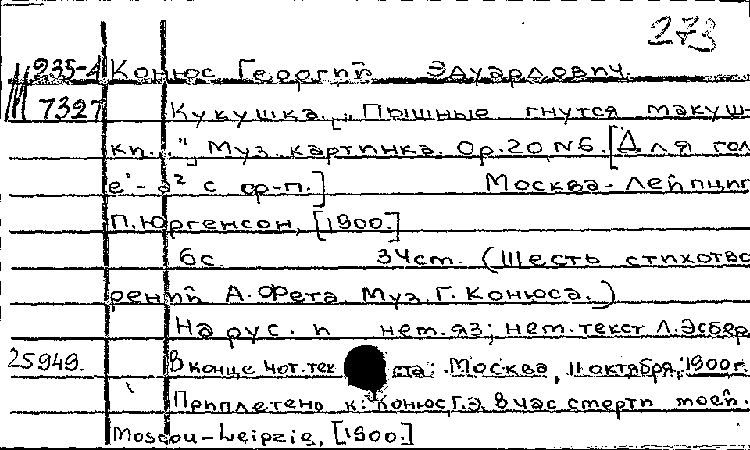 273
235-4 Конюс Георгий Эдуардович.
7327 Кукушка. [„Пышные гнутся макуш-
ки..."] Муз. картинка. Ор. 20, N 6. [Для гол.
e'-a² с ф-п.] Москва-Лейпциг
П. Юргенсон, [1900.]
6 с. 34 cm. (Шесть стихотво
рений А. Фета. Муз. Г. Конюса.)
На рус. и нем. яз; нем. текст Л. Эсбер
25949. В конце нот. тек ста: Москва, 11 октября, 1900 г.
Приплетено к: Конюс, Г.Э. В час смерти моей.
Moscou-Leipzig, [1900.]